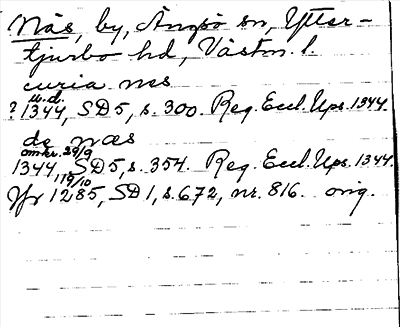 Näs, by, Ängsö sn, Ytter-
tjurbo hd, Västm. l.
curia nes
u.d.
? 1344, SD5, s. 300. Reg. Eccl. Ups. 1344.
de næs
omkr. 29/9
1344, SD5, s. 354. Reg. Eccl. Ups. 1344.
19/10
Jfr 1285, SD1, s. 672, nr. 816. orig.